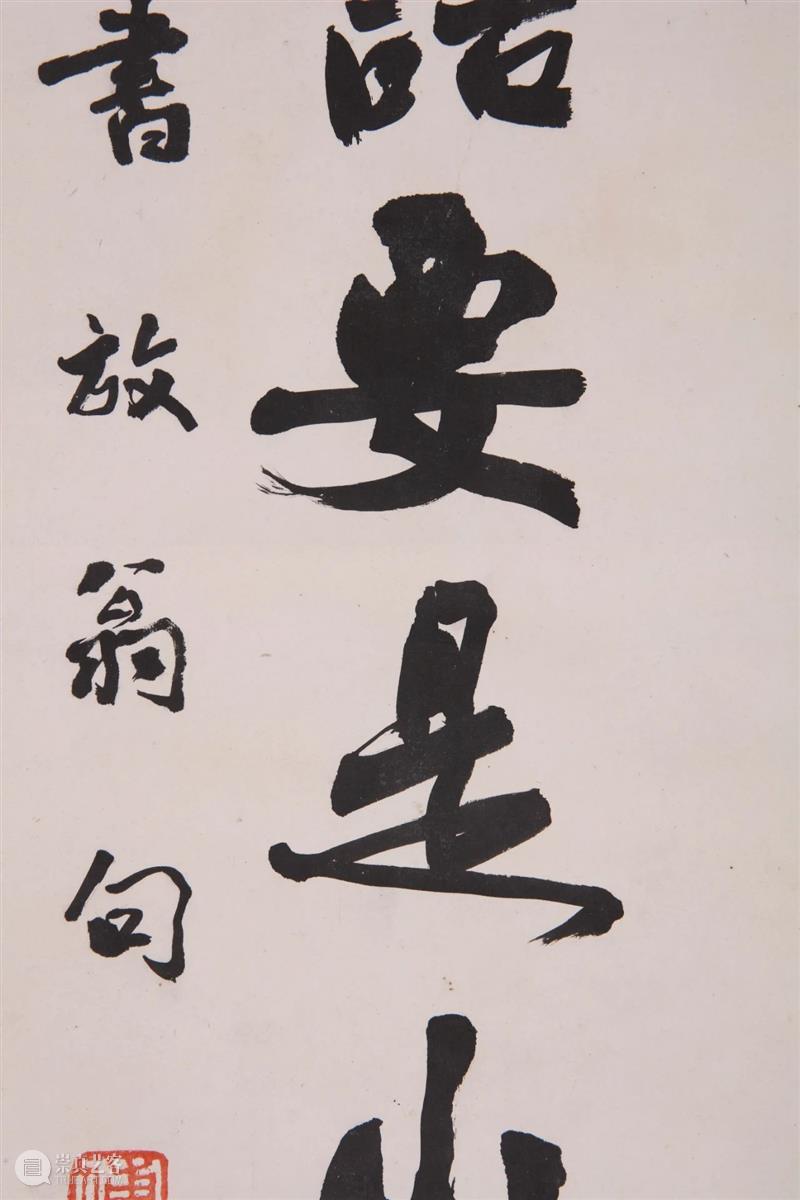 要是
書放翁句
崇真艺客